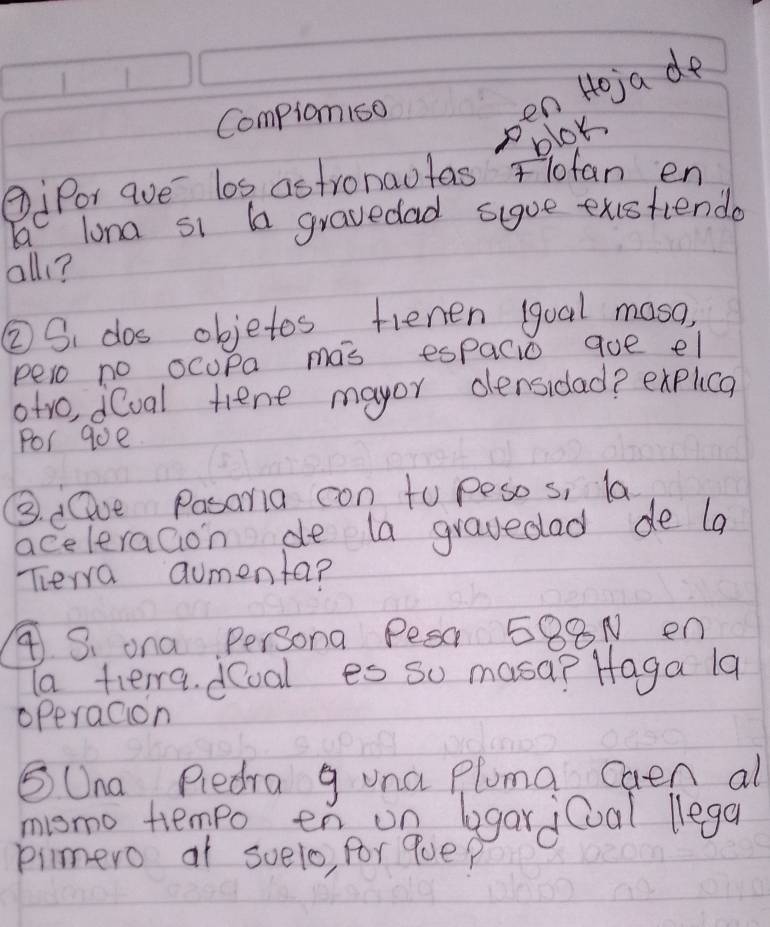 Compromiso
en Hoja de
blok
①¿Por que los astronautas Flotan en
la luna si la gravedad sigue existiendo
alli?
② Si dos objetos tienen igual masa,
pero no ocupa más espacio que el
otro, ¿Cual tiene mayor densidad? explica
Por que
③. ¿Que Pasaria con tu peso si la
aceleración de la gravedad de la
Tierra aumenta?
④. Si una Persona Pesa 588N en
la tierra. ¿Cual es su masa? Haga la
operación
⑤ Una Piedra y una Pluma Caen al
mismo tiempo en un lugar ¿Cual llega
primero al suelo, Por que?